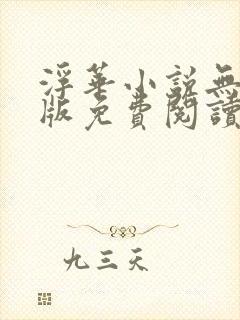 浮華小說無
版免費閱讀
九三天